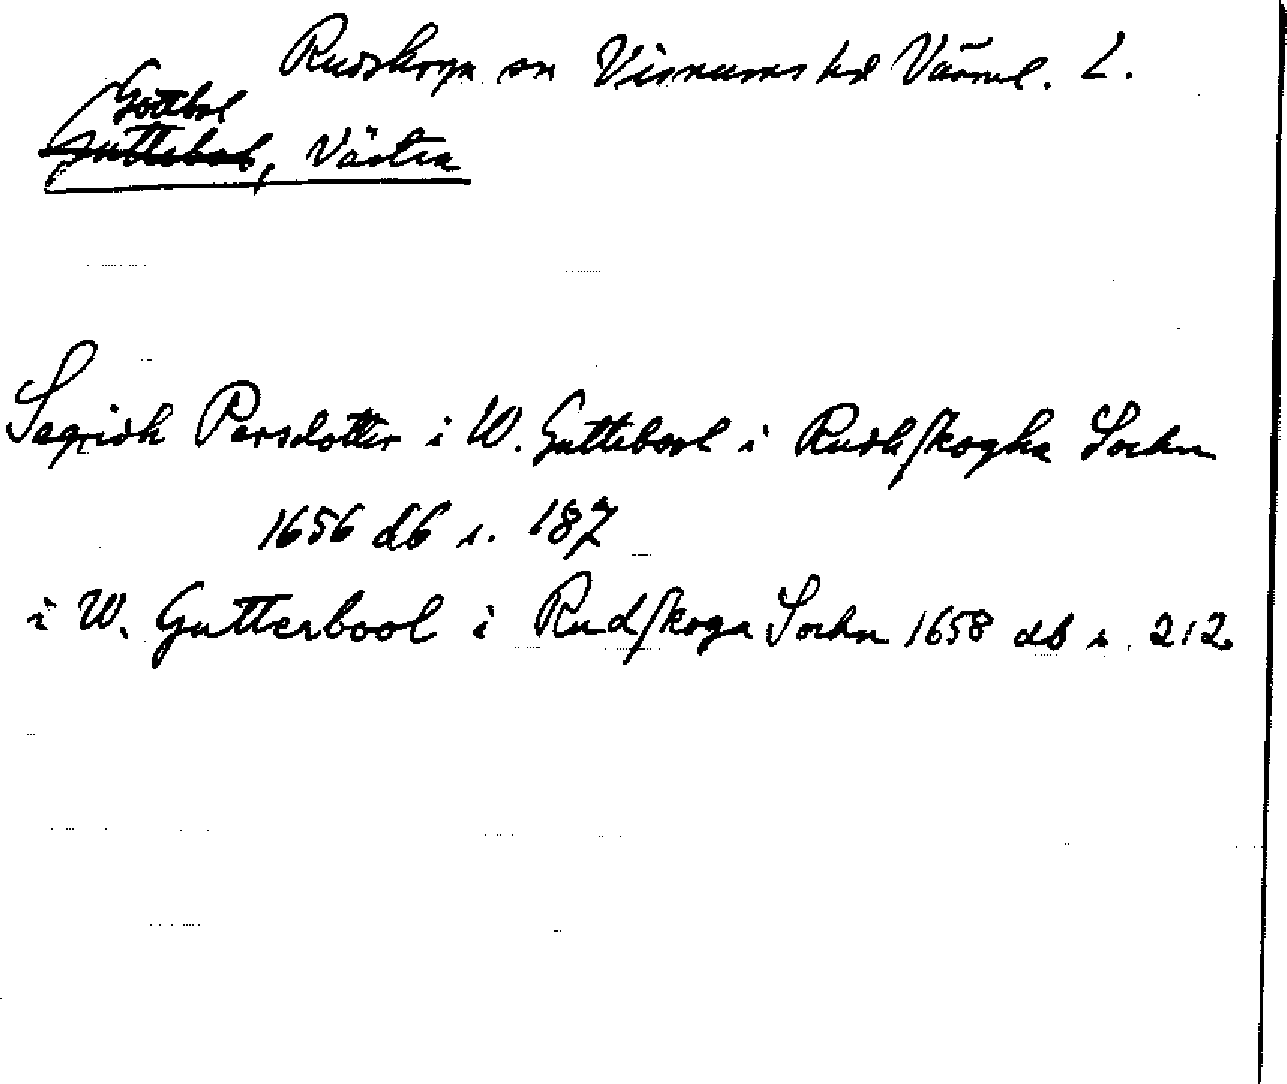 Rudskoga sn Visnums hd Värml. L.
Göttbol
Guttebol, Västra
Segridh Persdotter i W. Guttebool i Rudhſkogha Sochn
1656 db s. 187
i W. Gutterbool i Rudſkoga Sochn 1658 db s. 212